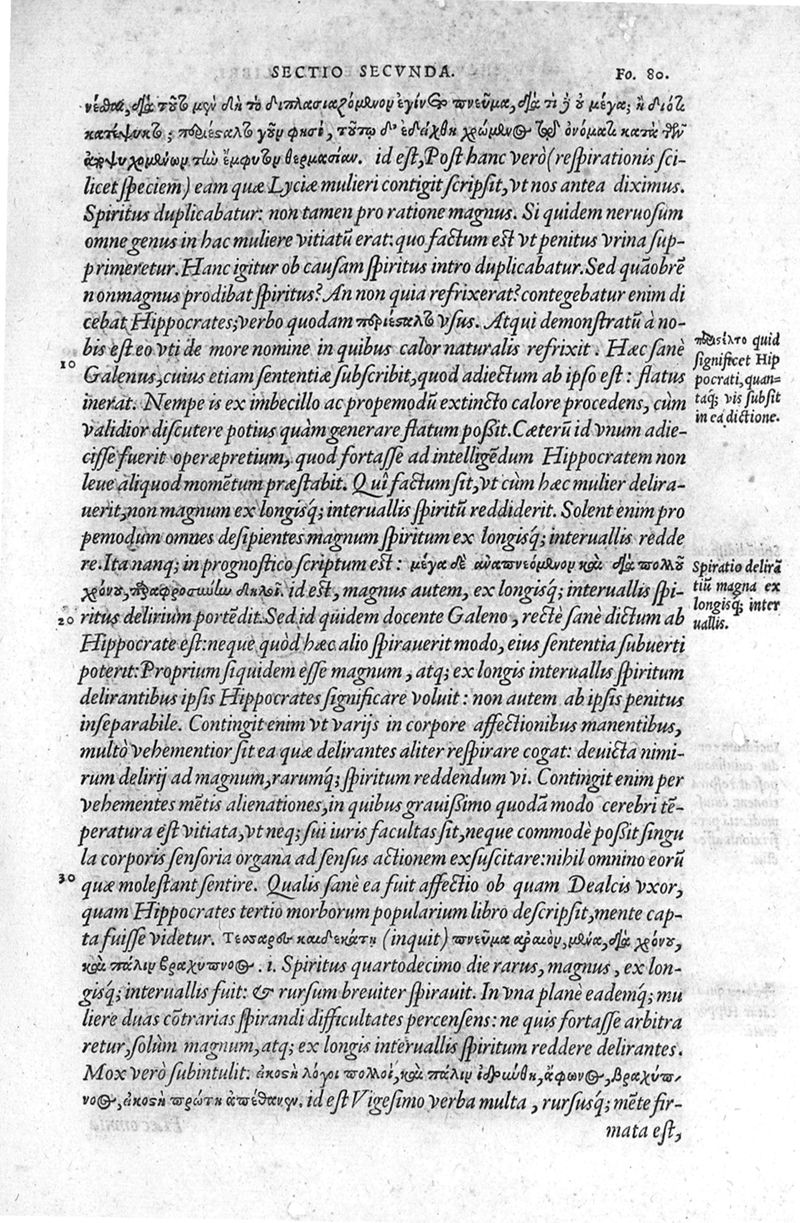 SECTIO SECVNDA.
Fo. 80.
νέσθαι, διὰ τοῦτο μὲν δὴ τὸ διπλασιαζόμενον ἐγίνετο πνεῦμα, διὰ τί δὲ οὐ μέγα; ἢ διότι
κατέψυκτο; περιέσαλτο γοῦν φησὶ, τούτῳ δ' ἐδείχθη χρώμενος τῷ ὀνόματι κατὰ τῶν
ἀπεψυχομένων τὴν ἔμφυτον θερμασίαν. id est, Post hanc verò (respirationis sci-
licet speciem) eam quæ Lyciæ mulieri contigit scripsit, vt nos antea diximus.
Spiritus duplicabatur: non tamen pro ratione magnus. Si quidem neruosum
omne genus in hac muliere vitiatũ erat: quo factum est vt penitus vrina sup-
primeretur. Hanc igitur ob causam spiritus intro duplicabatur. Sed quãobrẽ
non magnus prodibat spiritus? An non quia refrixerat? contegebatur enim di
cebat Hippocrates; verbo quodam περιέσαλτο vsus. Atqui demonstratũ à no-
bis est eo vti de more nomine in quibus calor naturalis refrixit. Hæc sanè
10
Galenus, cuius etiam sententiæ subscribit, quod adiectum ab ipso est: flatus
inerat. Nempe is ex imbecillo ac propemodũ extincto calore procedens, cùm
validior discutere potius quàm generare flatum possit. Cæterũ id vnum adie-
cisse fuerit operæpretium, quod fortasse ad intelligẽdum Hippocratem non
leue aliquod momẽtum præstabit. Quî factum sit, vt cùm hæc mulier delira-
uerit, non magnum ex longisq; interuallis spiritũ reddiderit. Solent enim pro
pemodum omnes desipientes magnum spiritum ex longisq; interuallis redde
re. Ita nanq; in prognostico scriptum est: μέγα δὲ ἀναπνεόμενον καὶ διὰ πολλοῦ
χρόνου, παραφροσύνην δηλοῖ. id est, magnus autem, ex longisq; interuallis spi-
20 ritus delirium portẽdit. Sed id quidem docente Galeno, rectè sanè dictum ab
Hippocrate est: neque quòd hæc alio spirauerit modo, eius sententia subuerti
poterit: Proprium siquidem esse magnum, atq; ex longis interuallis spiritum
delirantibus ipsis Hippocrates significare voluit: non autem ab ipsis penitus
inseparabile. Contingit enim vt varijs in corpore affectionibus manentibus,
multò vehementior sit ea quæ delirantes aliter respirare cogat: deuicta nimi-
rum delirij ad magnum, rarumq; spiritum reddendum vi. Contingit enim per
vehementes mẽtis alienationes, in quibus grauißimo quodã modo cerebri tẽ-
peratura est vitiata, vt neq; sui iuris facultas sit, neque commodè poßit singu
la corporis sensoria organa ad sensus actionem exsuscitare: nihil omnino eorũ
30 quæ molestant sentire. Qualis sanè ea fuit affectio ob quam Dealcis vxor,
quam Hippocrates tertio morborum popularium libro descripsit, mente cap-
ta fuisse videtur. Τεσσαρεσκαιδεκάτῃ (inquit) πνεῦμα ἀραιὸν, μέγα, διὰ χρόνου,
καὶ πάλιν βραχύπνοος. .i. Spiritus quartodecimo die rarus, magnus, ex lon-
gisq; interuallis fuit: & rursum breuiter spirauit. In vna planè eademq; mu
liere duas cõtrarias spirandi difficultates percensens: ne quis fortasse arbitra
retur, solùm magnum, atq; ex longis interuallis spiritum reddere delirantes.
Mox verò subintulit: εἰκοστῇ λόγοι πολλοὶ, καὶ πάλιν ἱδρύνθη, ἄφωνος, βραχύπ-
νοος, εἰκοστῇ πρώτῃ ἀπέθανεν. id est Vigesimo verba multa, rursusq; mẽte fir-
mata est,
περιέσελτο quid
significet Hip
pocrati, quan-
taq; vis subsit
in ea dictione.
Spiratio delirã
tiũ magna ex
longisq; inter
uallis.